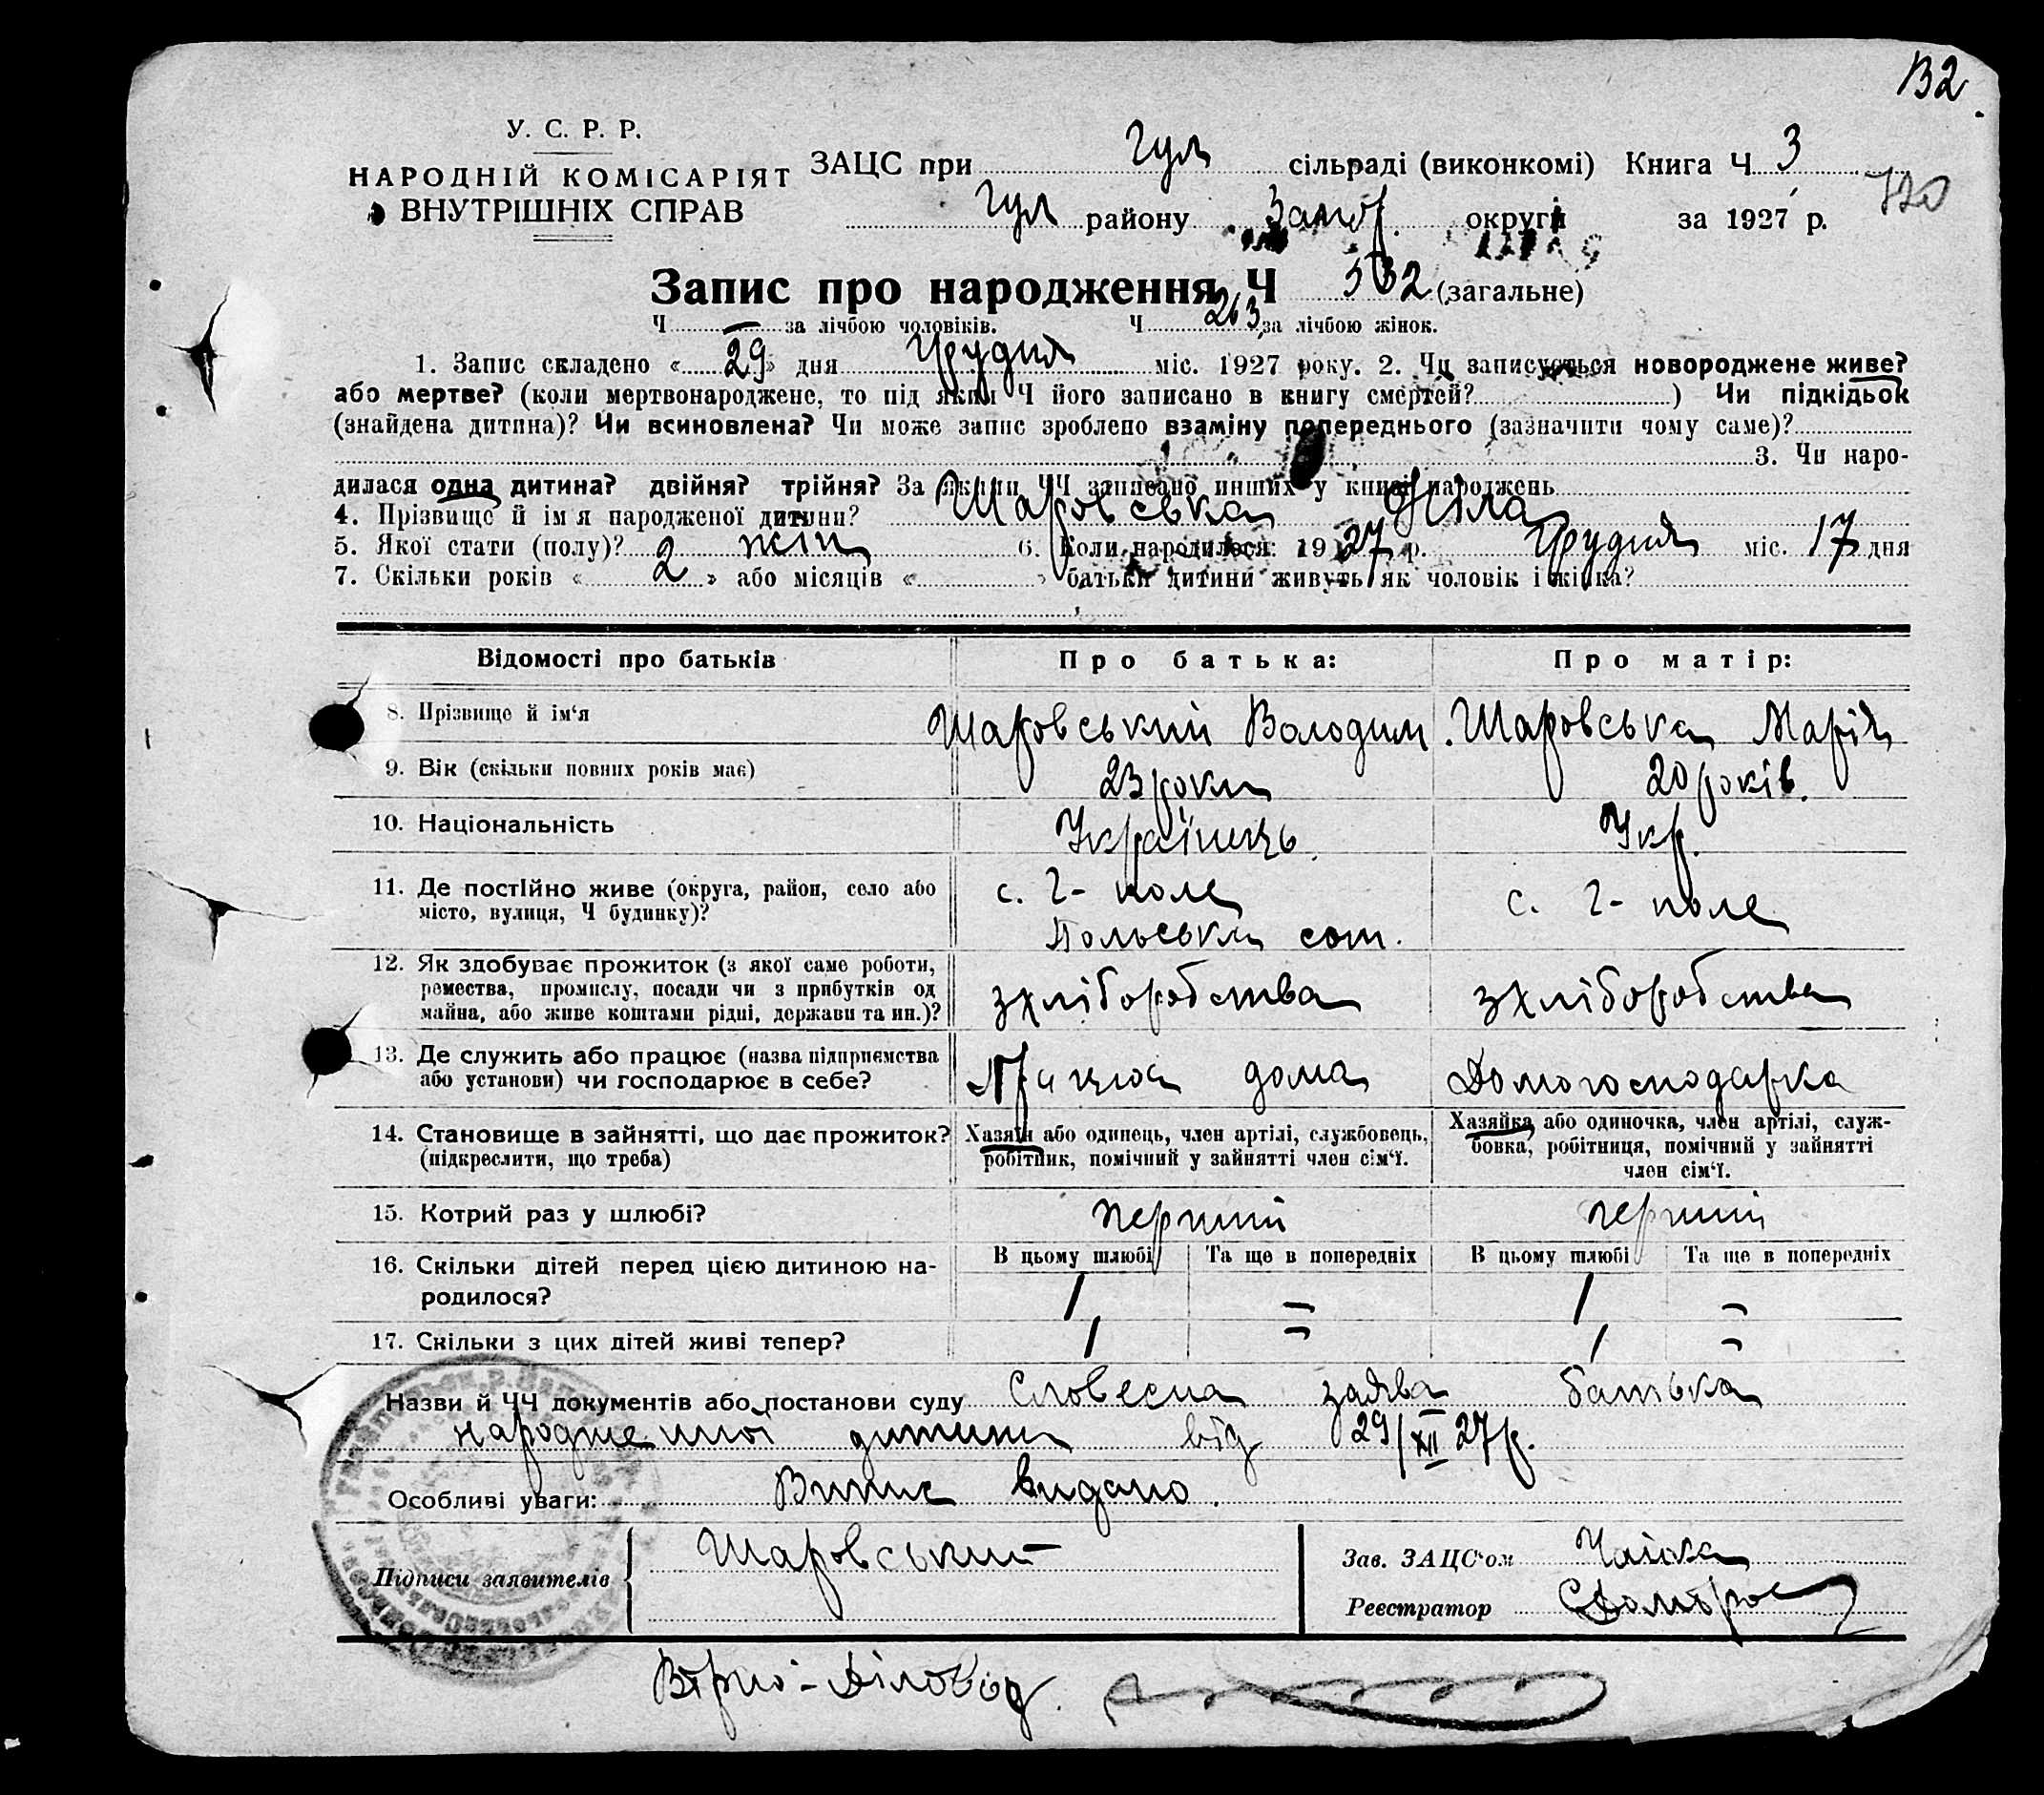 132.
У. С. Р. Р.
НАРОДНІЙ КОМІСАРІЯТ
ВНУТРІШНІХ СПРАВ
ЗАЦС при Гул сільраді (виконкомі) Книга Ч 3
Гул району Запор. округи за 1927 р.
Запис про народження Ч 532 (загальне)
Ч — за лічбою чоловіків. Ч 263 за лічбою жінок.
1. Запис складено « 29 » дня Грудня міс. 1927 року. 2. Чи записується новороджене живе?
або мертве? (коли мертвонароджене, то під яким Ч його записано в книгу смертей? ) Чи підкідьок
(знайдена дитина)? Чи всиновлена? Чи може запис зроблено взаміну попереднього (зазначити чому саме)?
3. Чи наро-
дилася одна дитина? двійня? трійня? За якими ЧЧ записано инших у книзі народжень
4. Прізвище й ім я народженої дитини? Шаровська
5. Якої стати (полу)? 2 жін 6. Коли народилося: 1927 р. Грудня міс. 17 дня
7. Скільки років « 2 » або місяців « » батьки дитини живуть як чоловік і жінка?
Відомості про батьків Про батька: Про матір:
8. Прізвище й ім'я Шаровський Володим. Шаровська Марія
9. Вік (скільки повних років має) 23 роки 20 років.
10. Національність Українець. Укр.
11. Де постійно живе (округа, район, село або
місто, вулиця, Ч будинку)?
с. Г- поле
Польськи сот.
с. Г- поле
12. Як здобуває прожиток (з якої саме роботи,
ремества, промислу, посади чи з прибутків од
майна, або живе коштами рідні, держави та ин.)?
зхліборобства зхліборобства
13. Де служить або працює (назва підприємства
або установи) чи господарює в себе?
Працює дома Домогосподарка
14. Становище в зайнятті, що дає прожиток?
(підкреслити, що треба)
Хазяїн або одинець, член артілі, службовець,
робітник, помічний у зайнятті член сім'ї.
Хазяйка або одиночка, член артілі, служ-
бовка, робітниця, помічний у зайнятті
член сім'ї.
15. Котрий раз у шлюбі? перший перший
16. Скільки дітей перед цією дитиною на-
родилося?
В цьому шлюбі Та ще в попередніх В цьому шлюбі Та ще в попередніх
1 — 1 —
17. Скільки з цих дітей живі тепер? 1 — 1 —
Назви й ЧЧ документів або постанови суду Словесна заява батька
народженої дитини від 29/XII 27р.
Особливі уваги: Випис видано.
Підписи заявителів Шаровський
Зав. ЗАЦС'ом
Реєстратор
Вірно - Діловод.